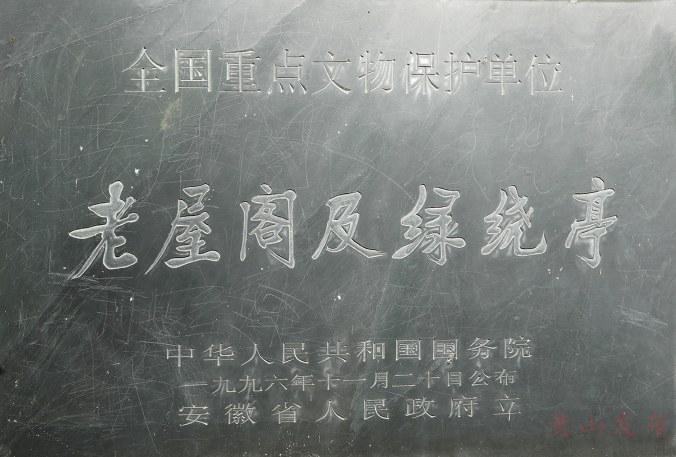 全国重点文物保护单位
老屋阁及绿绕亭
中华人民共和国国务院
一九九六年十一月二十日公布
安徽省人民政府立
黄山发布